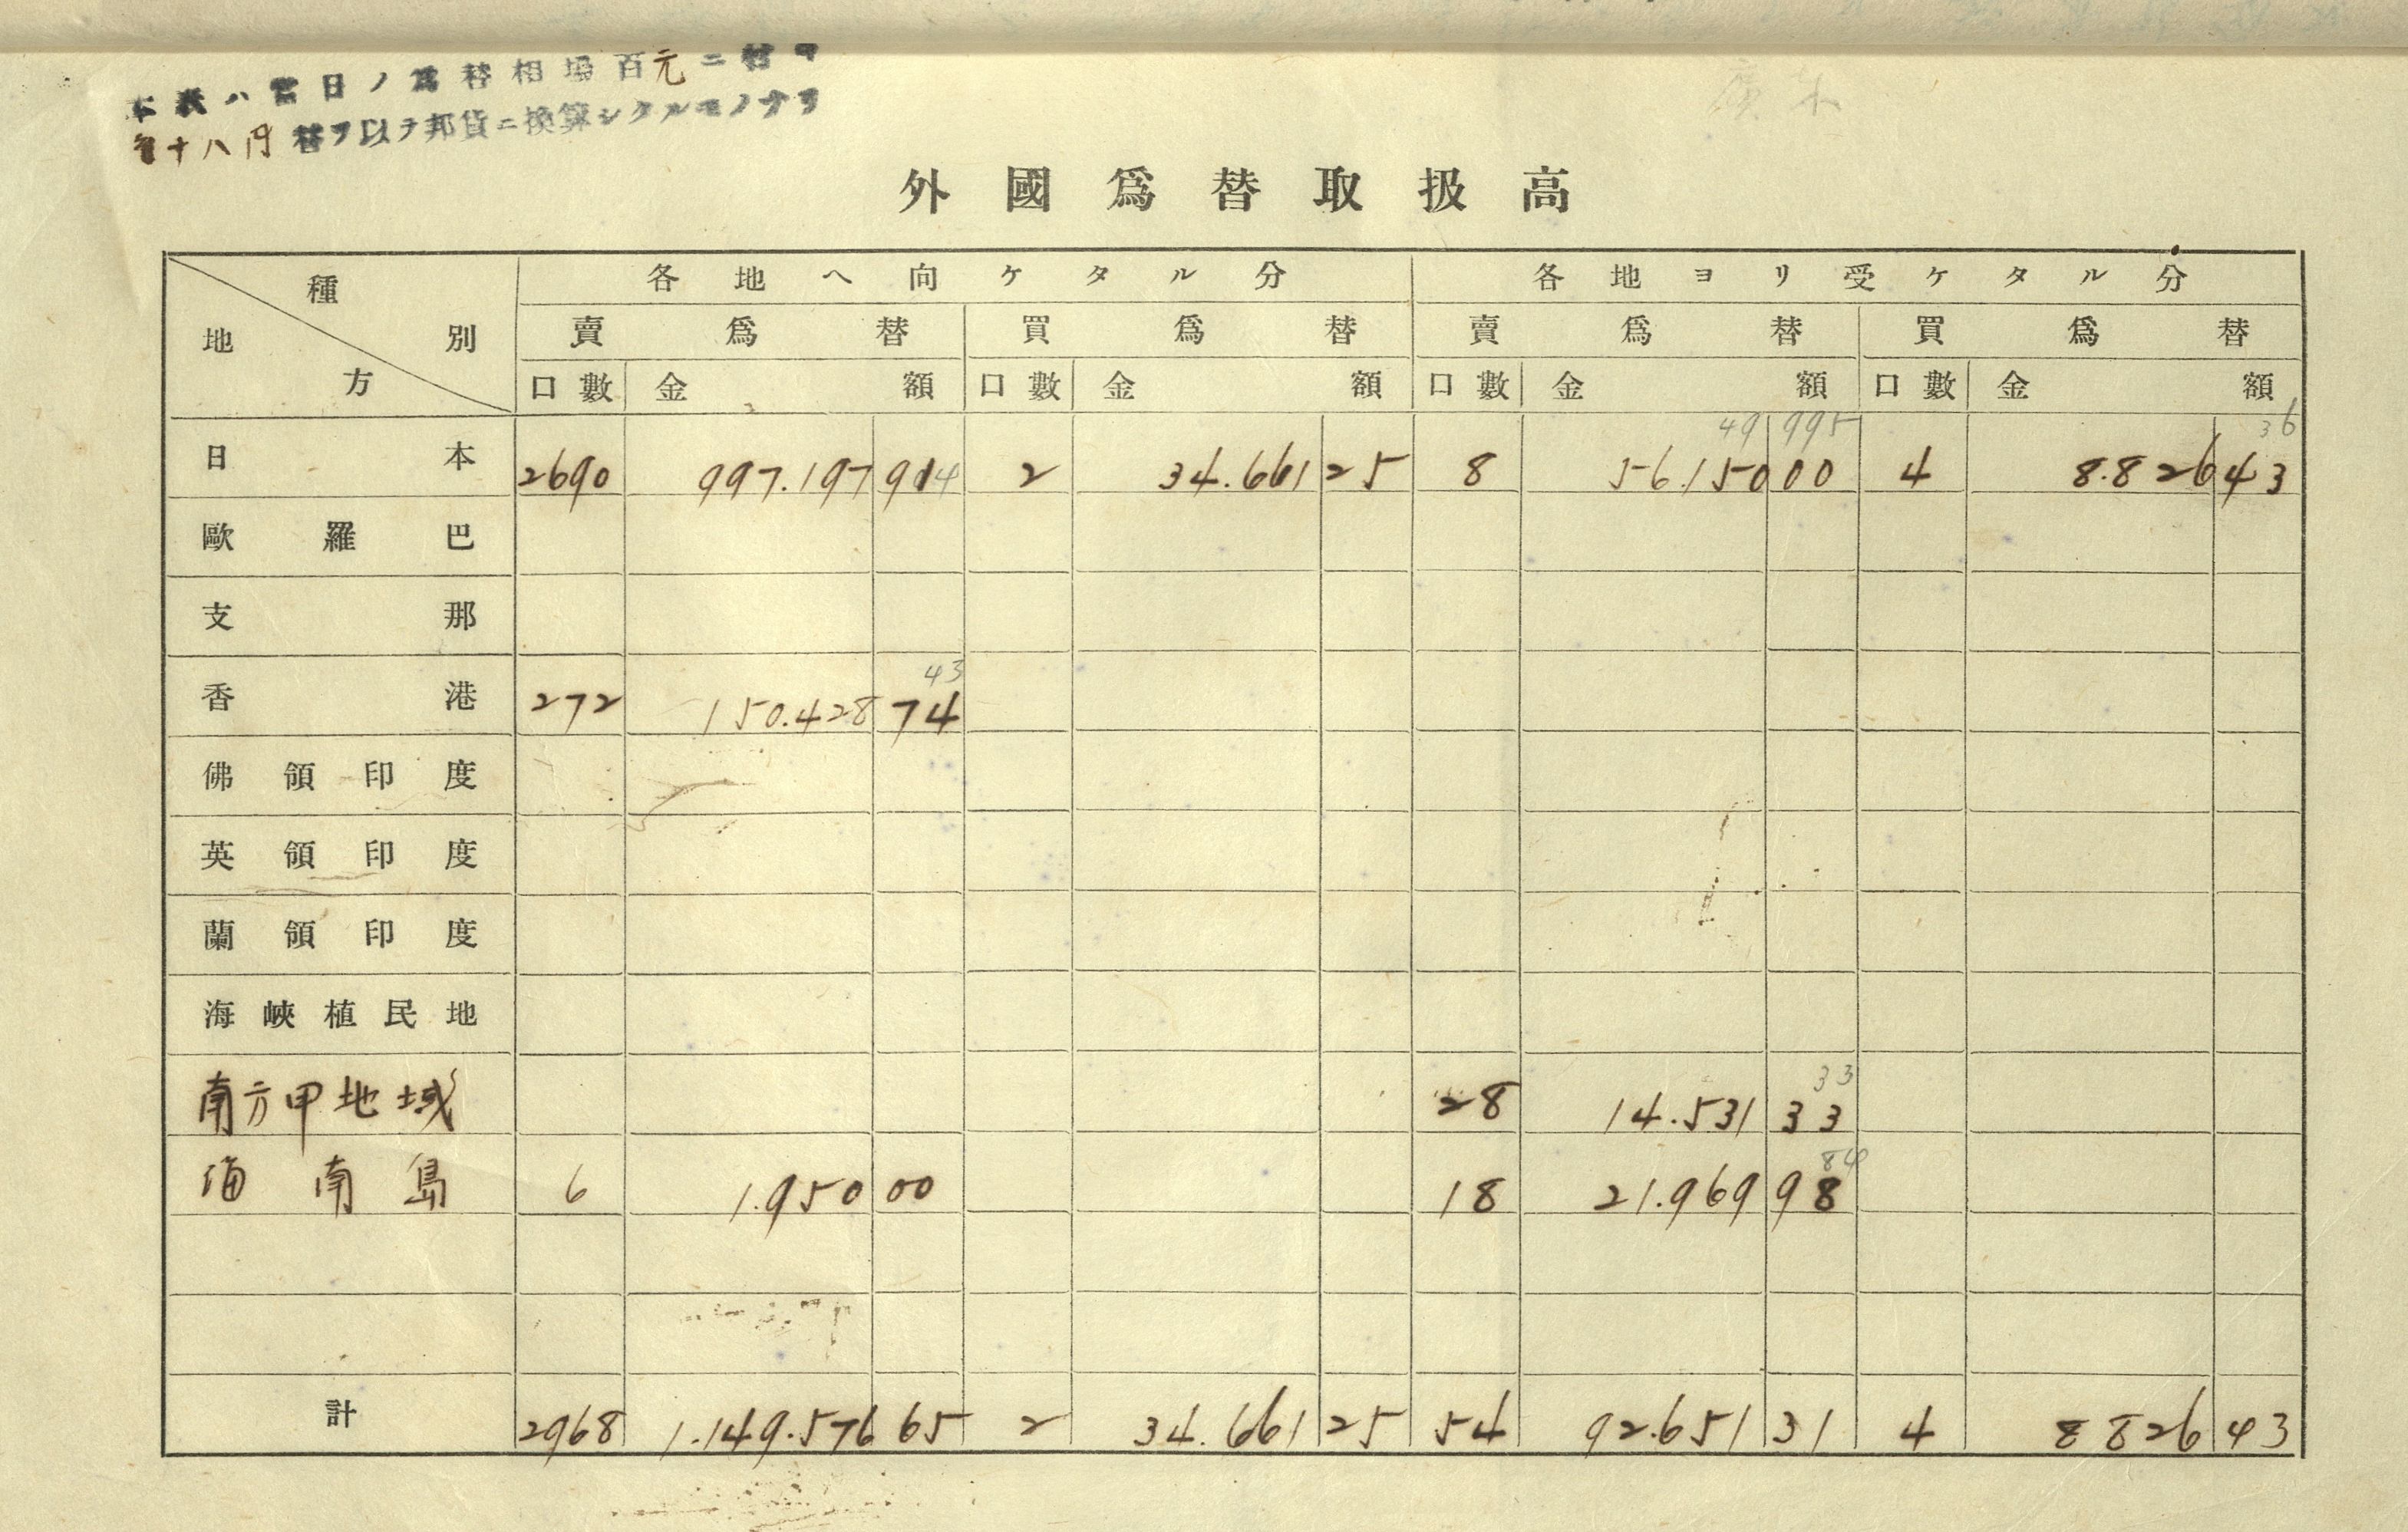 本表ハ當日ノ爲替相場百元ニ付
金十八円替ヲ以テ邦貨ニ換算シタルモノナリ
廣東
外國爲替取扱高
種別 地方 各地ヘ向ケタル分 各地ヨリ受ケタル分
賣爲替 買爲替 賣爲替 買爲替
口數 金額 口數 金額 口數 金額 口數 金額
49 995 36
日本 2690 997.197 91 2 34.661 25 8 56.150 00 4 8.826 43
歐羅巴
支那
43
香港 272 150.428 74
佛領印度
英領印度
蘭領印度
海峽植民地
33
南方甲地域 28 14.531 33
84
海南島 6 1.950 00 18 21.969 98
計 2968 1.149.576 65 2 34.661 25 54 92.651 31 4 8 826 43